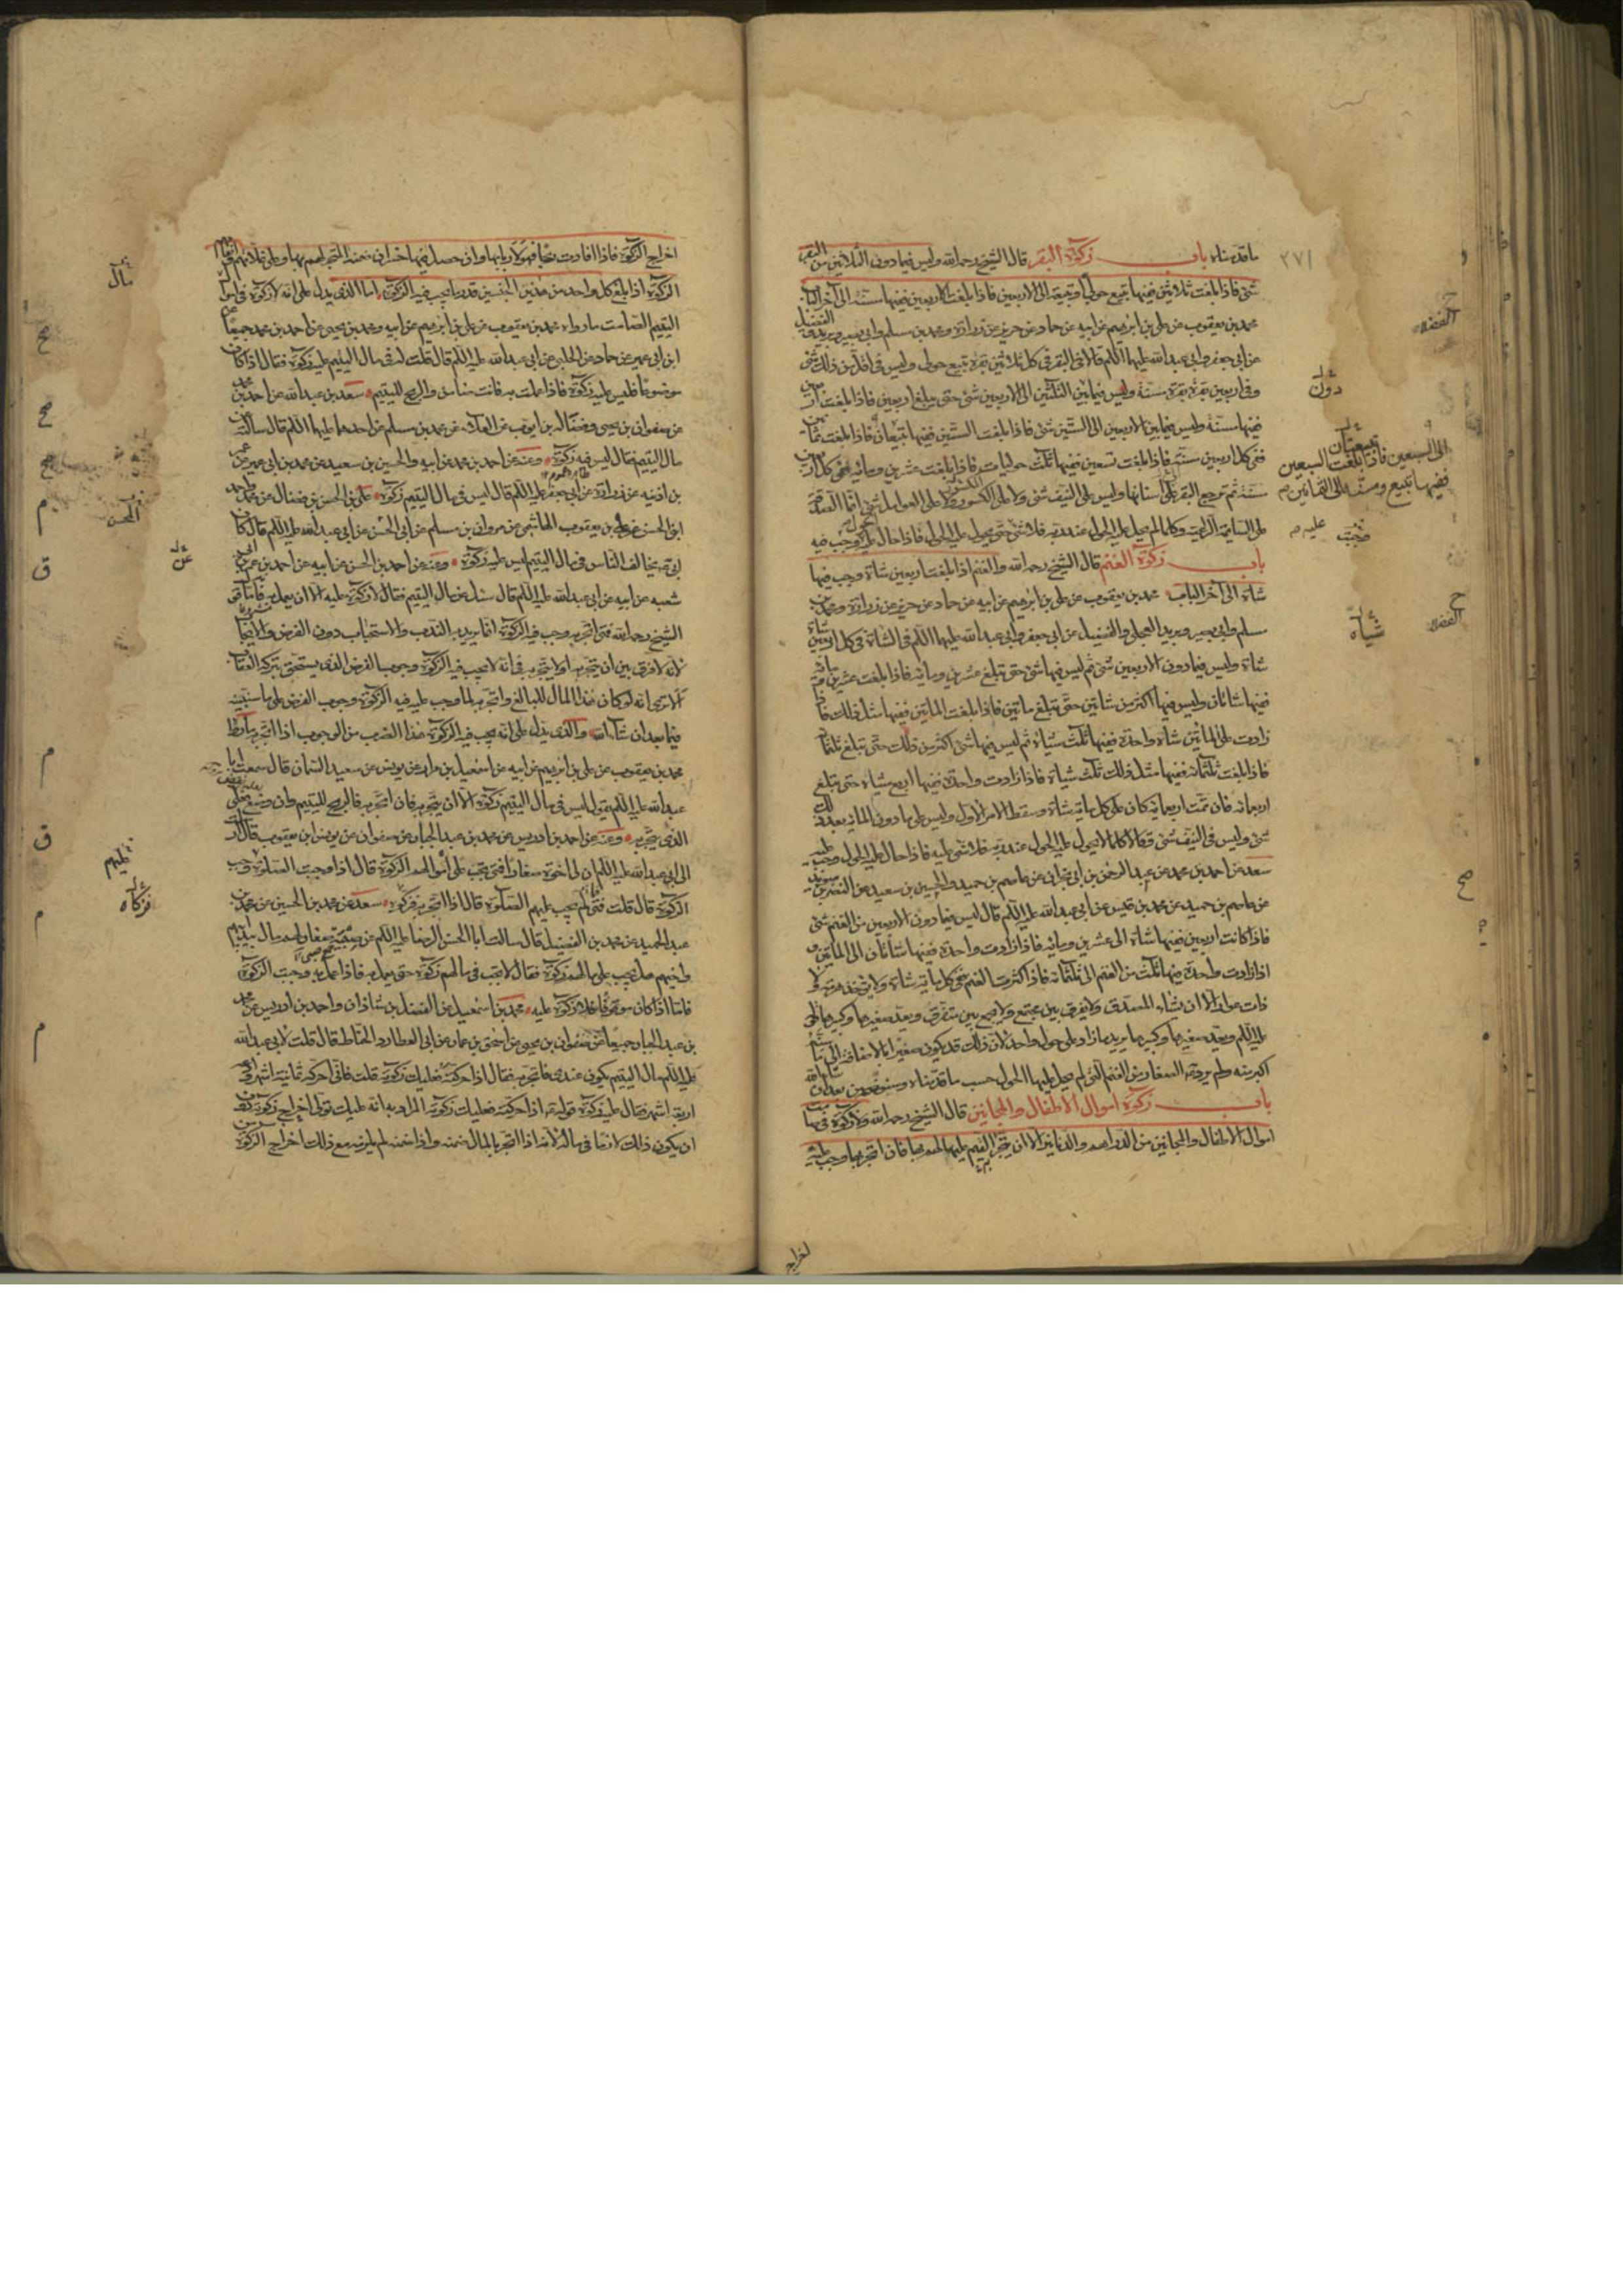 ما قدمناه باب زكوة البقر قال الشيخ رحمه الله وليس فيما دون الثلاثين من البقر
شئ فاذا بلغت ثلاثين ففيها تبيع حولي او تبيعة الى الاربعين فاذا بلغت اربعين ففيها مسنة الى آخر الباب
محمد بن يعقوب عن علي بن ابرهيم عن ابيه عن حماد عن حريز عن زرارة ومحمد بن مسلم وابي بصير وبريد والفضيل
عن ابي جعفر وابي عبد الله عليهما السلم قالا في البقر في كل ثلاثين بقرة تبيع حولي وليس في اقل من ذلك شئ
وفي اربعين بقرة بقرة مسنة وليس فيما بين الثلثين الى الاربعين شئ حتى يبلغ اربعين فاذا بلغت اربعين
ففيها مسنة وليس فيما بين الاربعين الى الستين شئ فاذا بلغت الستين ففيها تبيعان فاذا بلغت ثمانين
ففي كل اربعين مسنة فاذا بلغت تسعين ففيها ثلث حوليات فاذا بلغت عشرين ومائة ففي كل اربعين
مسنة ثم ترجع البقر على اسنانها وليس على النيف شئ ولا على الكسور ولا على العوامل شئ انما الصدقة
على السائمة الراعية وكلما لم يحل عليه الحول عند ربه فلا شئ حتى يحول عليه الحول فاذا حال وجب فيه
باب زكوة الغنم قال الشيخ رحمه الله والغنم اذا بلغت اربعين شاة وجب فيها
شاة الى آخر الباب محمد بن يعقوب عن علي بن ابرهيم عن ابيه عن حماد عن حريز عن زرارة ومحمد بن
مسلم وابي بصير وبريد العجلي والفضيل عن ابي جعفر وابي عبد الله عليهما السلم في الشاة في كل اربعين شاة
شاة وليس فيما دون الاربعين شئ ثم ليس فيها شئ حتى تبلغ عشرين ومائة فاذا بلغت عشرين ومائة
ففيها شاتان وليس فيها اكثر من شاتين حتى تبلغ مائتين فاذا بلغت المائتين ففيها مثل ذلك فاذا
زادت على المائتين شاة واحدة ففيها ثلث شياة ثم ليس فيها شئ اكثر من ذلك حتى تبلغ ثلثمائة
فاذا بلغت ثلثمائة ففيها مثل ذلك ثلث شياة فاذا زادت واحدة ففيها اربع شياة حتى تبلغ
اربعمائة فان تمت اربعمائة كان على كل مائة شاة وسقط الامر الاول وليس على ما دون المائة بعد ذلك
شئ وليس في النيف شئ وقالا كلما لا يحول عليه الحول عند ربه فلا شئ عليه فاذا حال عليه الحول وجب عليه
سعد عن احمد بن محمد عن عبد الرحمن بن ابي نجران عن عاصم بن حميد والحسين بن سعيد عن النضر بن سويد
عن عاصم بن حميد عن محمد بن قيس عن ابي عبد الله عليه السلم قال ليس فيما دون الاربعين من الغنم شئ
فاذا كانت اربعين ففيها شاة الى عشرين ومائة فاذا زادت واحدة ففيها شاتان الى المائتين و
اذا زادت واحدة ففيها ثلث من الغنم الى ثلثمائة فاذا كثرت الغنم ففي كل مائة شاة ولا يؤخذ هرمة ولا
ذات عوار الا ان يشاء المصدق ولا يفرق بين مجتمع ولا يجمع بين متفرق ويعد صغيرها وكبيرها
عليه السلم ويعد صغيرها وكبيرها يريد ما زاد على حول واحد لان ذلك قد يكون صغيرا بالاضافة الى ما
اكبر منه ولم يرد به الصغار من الغنم التي لم يحل عليها الحول حسب ما قدمناه
باب زكوة اموال الاطفال والمجانين قال الشيخ رحمه الله ولا زكوة في صامت
اموال الاطفال والمجانين من الدراهم والدنانير الا ان يتجر القيم عليهم لهم بها فان اتجر بها وجب عليه
اخراج
٢٧١
دون
تبيعتان
الى السبعين فاذا بلغت السبعين
ففيها تبيع ومسنة الى الثمانين
شياه
اخراج الزكوة فاذا افادت ربحا فهو لاربابها وان حصل فيها خسران ضمنه المتجر لهم بها
الزكوة اذا بلغ كل واحد من هذين الجنسين قدر ما يجب فيه الزكوة اما الذي يدل على انه لا زكوة في اموال
اليتيم الصامت ما رواه محمد بن يعقوب عن علي بن ابرهيم عن ابيه ومحمد بن يحيى عن احمد بن محمد جميعا
ابن ابي عمير عن حماد عن الحلبي عن ابي عبد الله عليه السلم قال قلت له في مال اليتيم عليه زكوة فقال اذا كان
موضوعا فليس عليه زكوة فاذا عملت به فانت ضامن والربح لليتيم سعد بن عبد الله عن احمد بن محمد
عن صفوان بن يحيى وفضالة بن ايوب عن العلاء عن محمد بن مسلم عن احدهما عليهما السلم قال سألته عن
مال اليتيم فقال ليس فيه زكوة وعنه عن احمد بن محمد عن ابيه والحسين بن سعيد عن محمد بن ابي عمير عن عمر
بن اذينة عن زرارة عن ابي جعفر عليه السلم قال ليس في مال اليتيم زكوة علي بن الحسن بن فضال عن محمد واحمد
ابني الحسن عن علي بن يعقوب الهاشمي عن مروان بن مسلم عن ابي الحسن عن ابي عبد الله عليه السلم قال كان
ابي يخالف الناس في مال اليتيم ليس عليه زكوة وعنه عن احمد بن الحسن عن ابيه عن احمد بن عمر بن
شعبه عن ابيه عن ابي عبد الله عليه السلم قال سئل عن مال اليتيم فقال لا زكوة عليه الا ان يعمل به فاما قول
الشيخ رحمه الله متى اتجر به وجب فيه الزكوة انما يريد به الندب والاستحباب دون الفرض والايجاب
لانه لا فرق بين ان يتجر به او لا يتجر به في انه لا يجب فيه الزكوة وجوب الفرض الذي يستحق بتركه العقاب
الا ترى انه لو كان هذا المال للبالغ واتجر به لما وجب عليه فيه الزكوة وجوب الفرض على ما سنبينه
فيما بعد ان شاء الله والذي يدل على انه يجب فيه الزكوة هذا الضرب من الوجوب اذا اتجر به ما رواه
محمد بن يعقوب عن علي بن ابرهيم عن ابيه عن اسمعيل بن مرار عن يونس عن سعيد السمان قال سمعت ابا
عبد الله عليه السلم يقول ليس في مال اليتيم زكوة الا ان يتجر به فان اتجر به فالربح لليتيم وان وضع فعلى
الذي يتجر به وعنه عن احمد بن ادريس عن محمد بن عبد الجبار عن صفوان عن يونس بن يعقوب قال ارسلت
الى ابي عبد الله عليه السلم ان لي اخوة صغارا فمتى يجب على اموالهم الزكوة قال اذا وجبت الصلوة وجبت
الزكوة قال قلت فمتى لم يجب عليهم الصلوة قال اذا اتجر به فزكوه سعد عن محمد بن الحسين عن محمد بن
عبد الحميد عن محمد بن الفضيل قال سالت ابا الحسن الرضا عليه السلم عن صبية صغار لهم مال بيد ابيهم
واخيهم هل يجب على مالهم زكوة فقال لا يجب في مالهم زكوة حتى يعمل به فاذا عمل به وجبت الزكوة
فاما اذا كان موقوفا فلا زكوة عليه محمد بن اسمعيل عن الفضل بن شاذان واحمد بن ادريس عن محمد
بن عبد الجبار جميعا عن صفوان بن يحيى عن اسحق بن عمار عن ابي العطارد الحناط قال قلت لابي عبد الله
عليه السلم مال اليتيم يكون عندي فاتجر به فقال اذا حركته فعليك زكوته قلت فاني احركه ثمانية اشهر وادعه
اربعة اشهر فقال عليك زكوة قوله اذا حركته فعليك زكوته المراد به انه عليك تولي اخراج زكوته
ان يكون ذلك لازما في ماله لانه اذا اتجر بالمال ضمنه واذا ضمنه لم يلزمه مع ذلك اخراج الزكوة
مال
عن
عليهم
زكاه